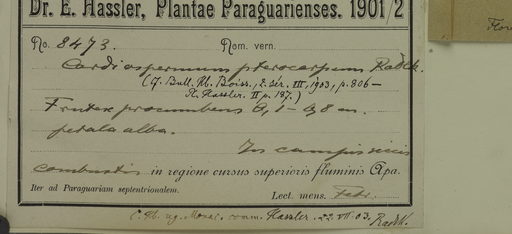 Dr. E. Hassler, Plantae Paraguarienses. 1901/2
No. 8473. Nom. vern.
Cardiospermum pterocarpum Radlk.
(Cf. Bull. Hb. Boiss., 2. sér. III, 1903, p. 806 —
Pl. Hassler. II p. 187.)
Frutex procumbens 0,1 – 0,8 m.
petala alba.
In campis siccis
combustis in regione cursus superioris fluminis Apa.
Iter ad Paraguariam septentrionalem. Lect. mens. Febr.
C. Hb. reg. Monac. comm. Hassler. 22. VII. 03. Radlk.